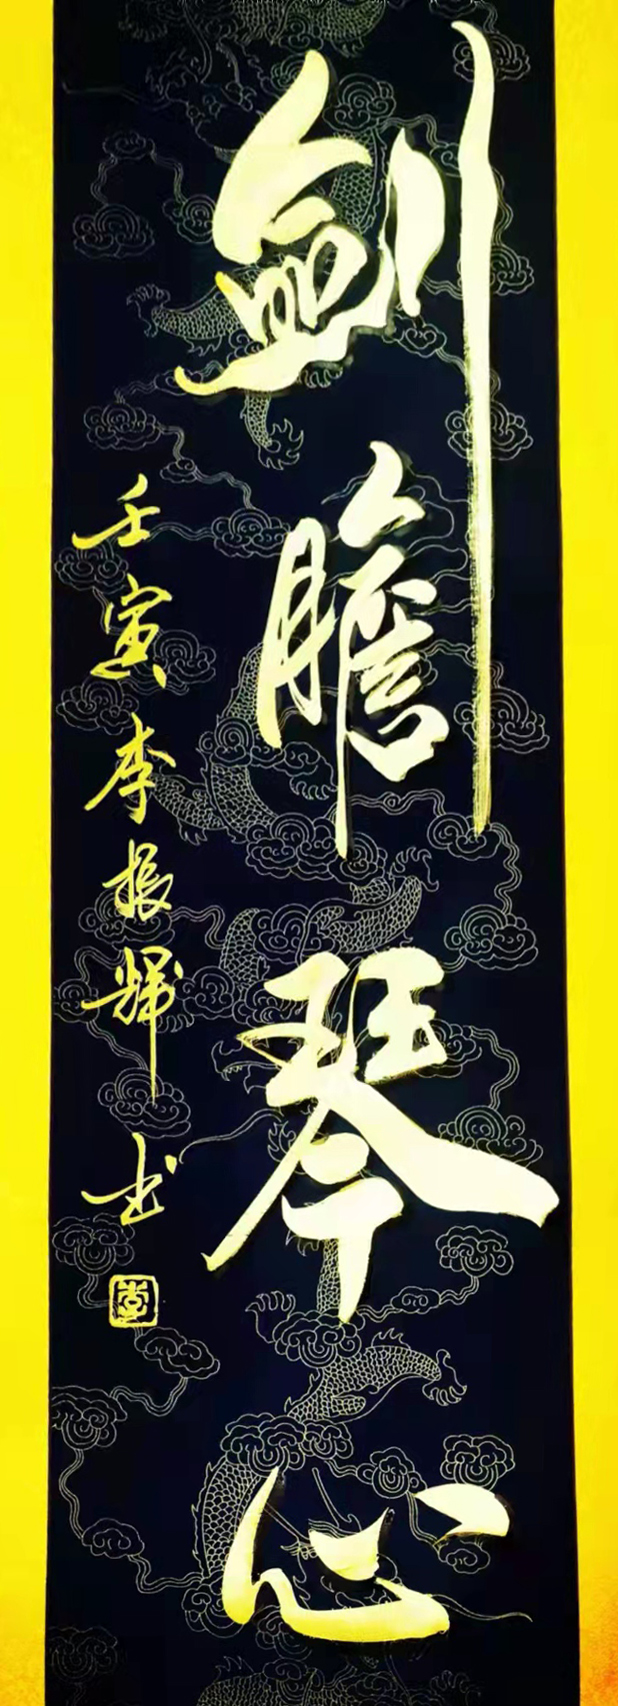 劍膽琴心
壬寅李振輝书